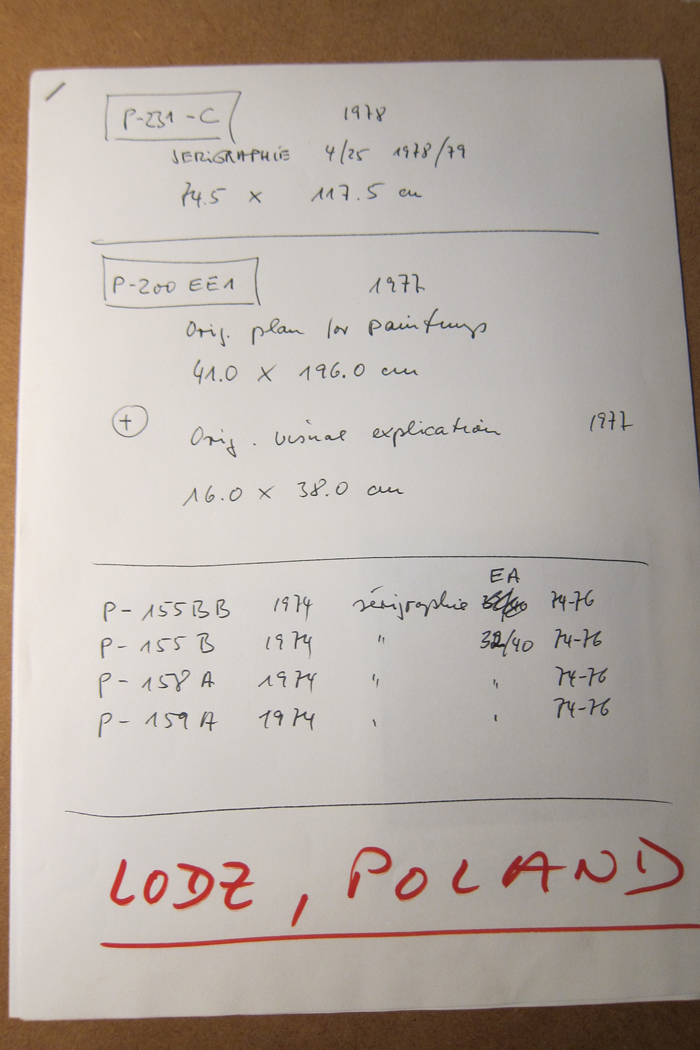 P-231-C 1978
SERIGRAPHIE 4/25 1978/79
74.5 x 117.5 cm
P-200 EE1 1977
Orig. plan for paintings
41.0 X 196.0 cm
+ Orig. visual explication 1977
16.0 x 38.0 cm
EA
P-155BB 1974 sérigraphie 74-76
P-155 B 1974 " 32/40 74-76
P-158 A 1974 " " 74-76
P-159 A 1974 " " 74-76
LODZ, POLAND